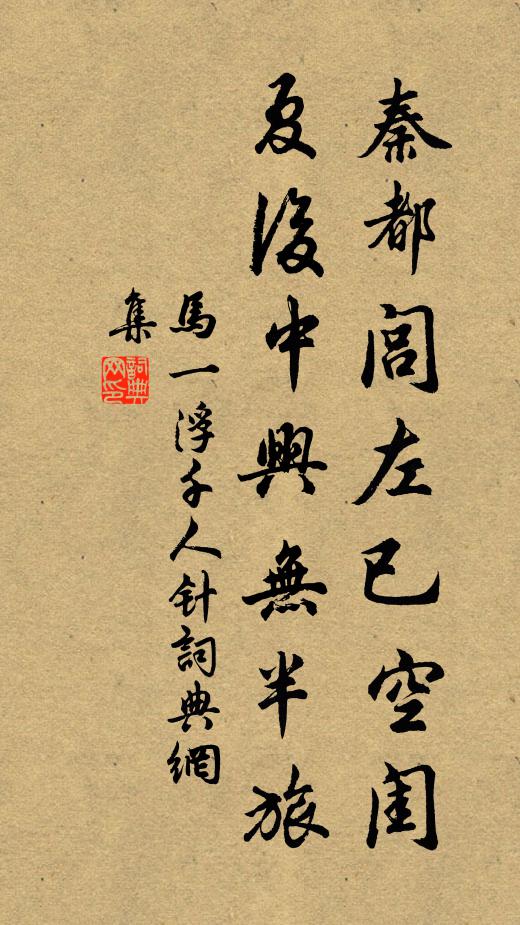 秦都閭左已空閨
夏後中興無半旅
馬一浮千人针詞典網
集
詞典網印